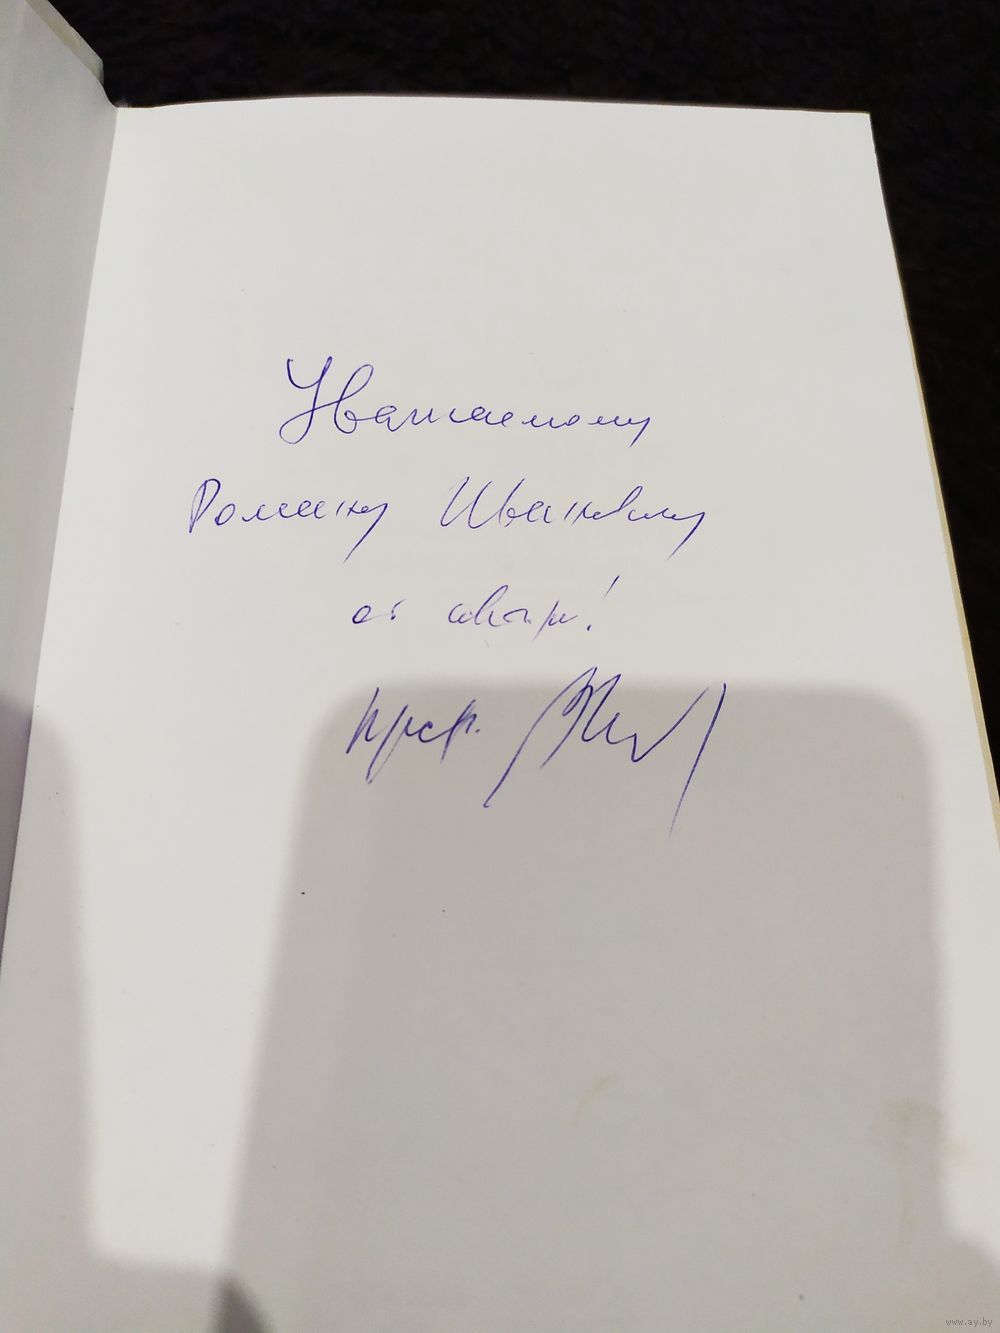 Уважаемому
Роману Ивановичу
от автора!
проф.
www.ay.by